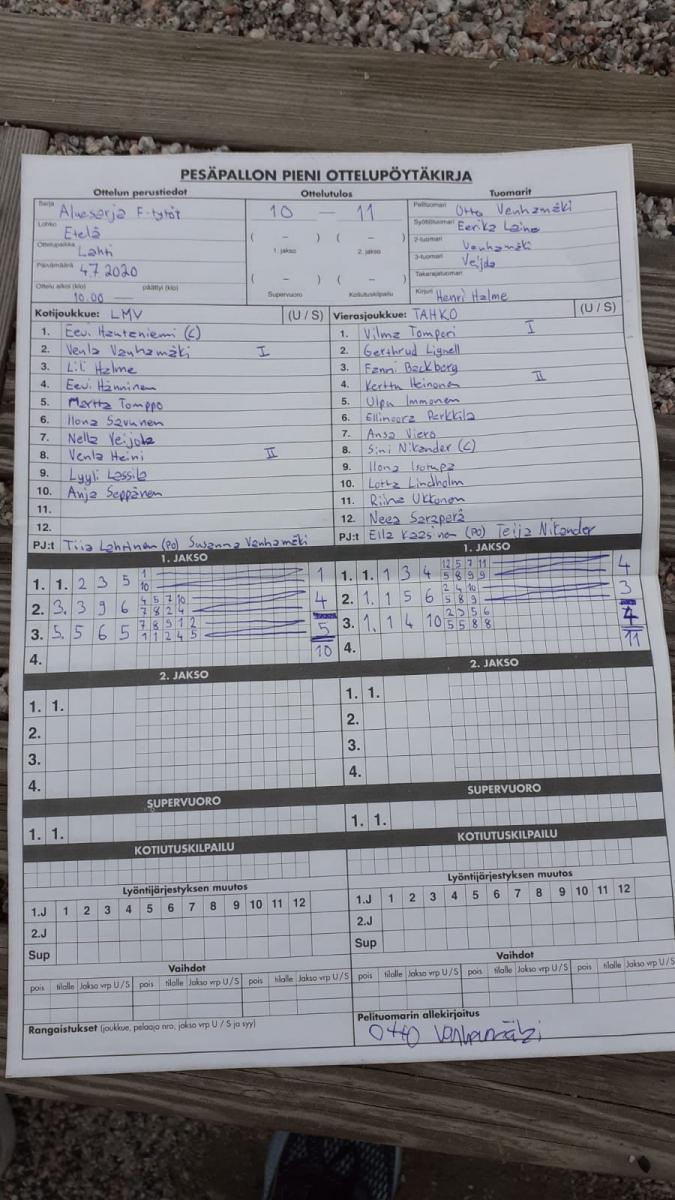 PESÄPALLON PIENI OTTELUPÖYTÄKIRJA
Ottelun perustiedot
Ottelutulos
Tuomarit
Sarja Aluesarja F-tytöt
Lohko Etelä
Ottelupaikka Lahti
Päivämäärä 4.7 2020
Ottelu alkoi (klo) päättyi (klo)
10.00 —
10 — 11
( – ) ( – )
1. jakso 2. jakso
( – ) ( – )
Supervuoro Kotiutuskilpailu
Pelituomari Otto Vanhamäki
Syöttötuomari Eerika Laine
2-tuomari Vanhamäki
3-tuomari Veijola
Takarajatuomari
Kirjuri Henri Halme
Kotijoukkue: LMV (U / S)
1. Eevi Hauteniemi (C)
2. Venla Vanhamäki I
3. Lili Halme
4. Eevi Hänninen
5. Martta Tomppo
6. Ilona Savunen
7. Nella Veijola
8. Venla Heini II
9. Lyyli Lassila
10. Anja Seppänen
11.
12.
PJ:t Tiia Lahtinen (PO) Susanna Vanhamäki
Vierasjoukkue: TAHKO (U / S)
1. Vilma Tomperi I
2. Gerthrud Lignell
3. Fanni Backberg
4. Kerttu Heinonen II
5. Ulpu Immonen
6. Ellinoora Perkkilä
7. Ansa Viero
8. Sini Nikander (C)
9. Ilona Isotupa
10. Lotta Lindholm
11. Riina Ukkonen
12. Neea Saraperä
PJ:t Ella Kaasinen (PO) Teija Nikander
1. JAKSO
1. 1. 2 3 5 1 10 1
2. 3. 3 9 6 4 5 7 10 7 8 2 4 4
3. 5. 5 6 5 7 8 9 1 2 1 1 2 4 5 5
4. 10
1. JAKSO
1. 1. 1 3 4 12 5 7 11 5 8 9 9 4
2. 1. 1 5 6 2 4 10 5 8 9 3
3. 1. 1 4 10 2 3 5 6 5 5 8 8 4
4. 11
2. JAKSO
1. 1.
2.
3.
4.
2. JAKSO
1. 1.
2.
3.
4.
SUPERVUORO
1. 1.
SUPERVUORO
1. 1.
KOTIUTUSKILPAILU
KOTIUTUSKILPAILU
Lyöntijärjestyksen muutos
1.J 1 2 3 4 5 6 7 8 9 10 11 12
2.J
Sup
Lyöntijärjestyksen muutos
1.J 1 2 3 4 5 6 7 8 9 10 11 12
2.J
Sup
Vaihdot
pois tilalle Jakso vrp U / S pois tilalle Jakso vrp U / S pois tilalle Jakso vrp U / S
Vaihdot
pois tilalle Jakso vrp U / S pois tilalle Jakso vrp U / S pois tilalle Jakso vrp U / S
Rangaistukset (joukkue, pelaaja nro, jakso vrp U / S ja syy)
Pelituomarin allekirjoitus
Otto Vanhamäki